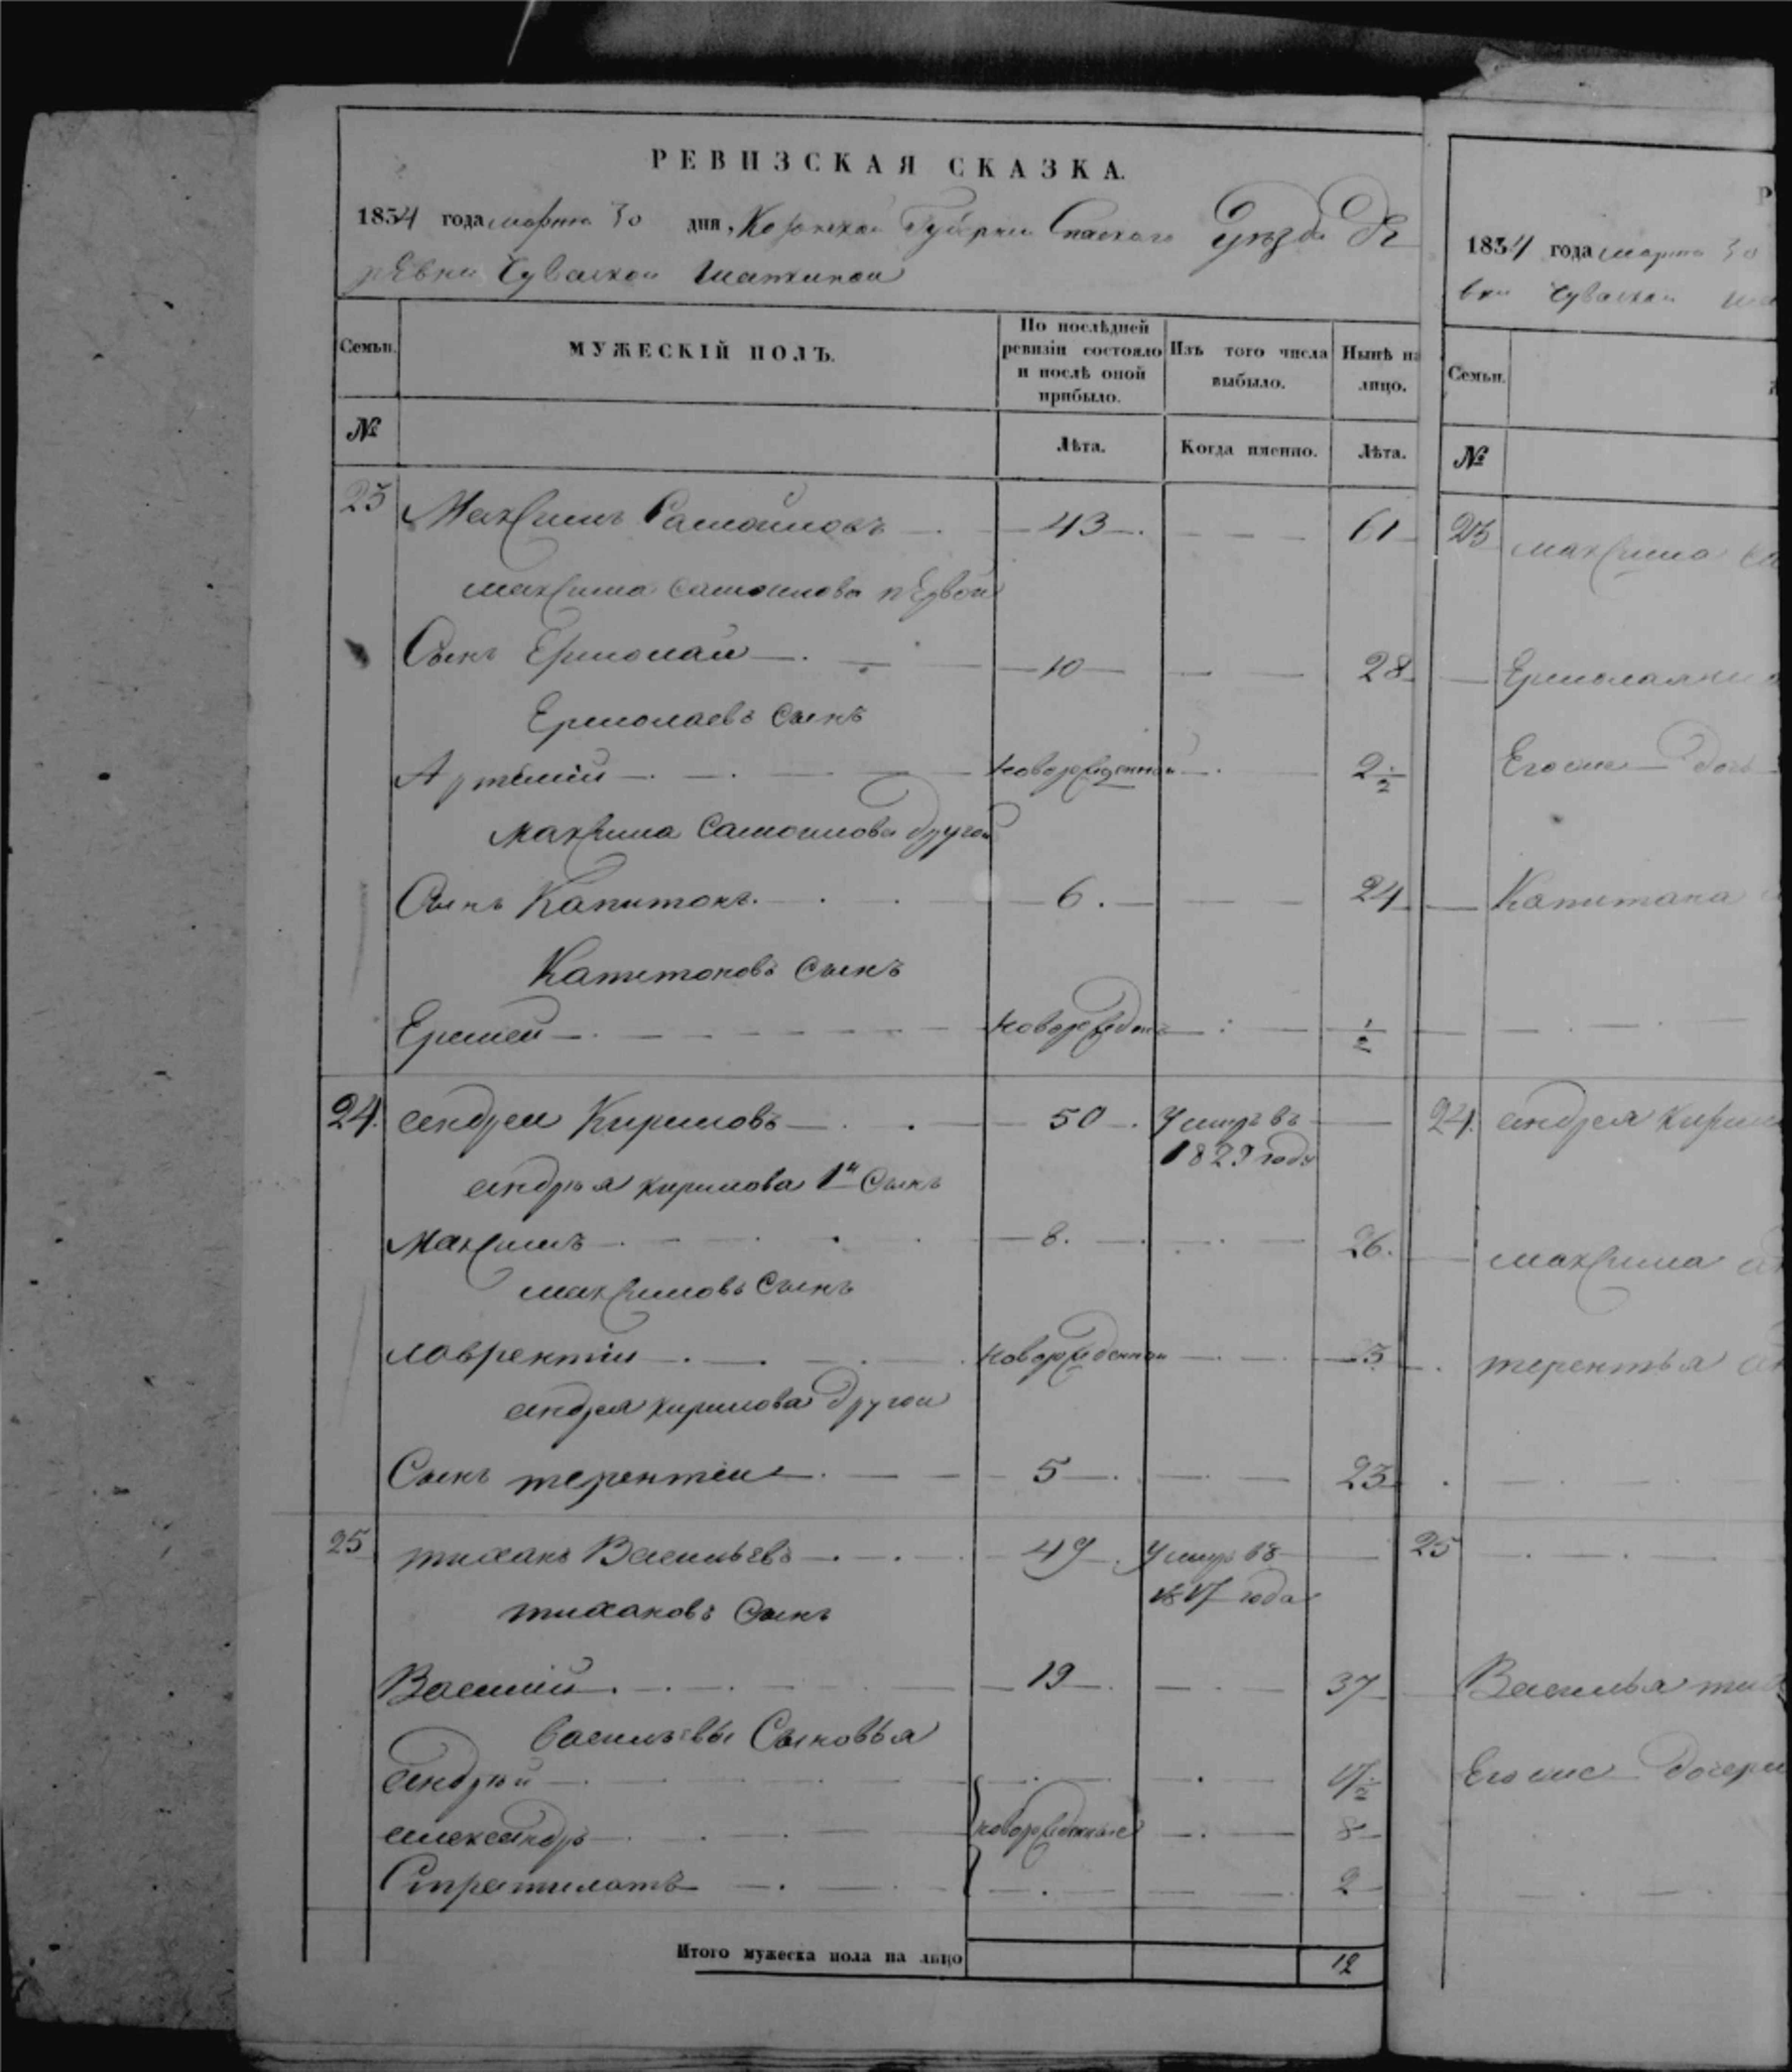 РЕВИЗСКАЯ СКАЗКА.
1834 года марта 30 дня, Казанской Губернии Спаского Уезда де
ревни Чуваской Шаткиной
Семьи.
МУЖЕСКІЙ ПОЛЪ.
По послѣдней ревизіи состояло и послѣ оной прибыло.
Изъ того числа выбыло.
Нынѣ на лицо.
№
Лѣта.
Когда именно.
Лѣта.
23 Максимъ Самойловъ 43 61
Максима Самоилова первой
Сынъ Ермолай 10 28
Ермолаевъ сынъ
Артемій новорожденной 2 1/2
Максима Самоилова другой
Сынъ Капитонъ 6 24
Капитоновъ сынъ
Еремей новорожденъ 1/2
24. андреи Кириловъ 50 Умеръ въ
1829 году
андрея кирилова 1й Сынъ
Максимъ 8. 26.
максимовъ Сынъ
лаврентіи новорожденной 3
андрея кирилова другои
Сынъ терентіи 5 23
25 тиханъ Васильевъ 49 Умеръ въ
1817 года
тихановъ Сынъ
Василій 19 37
васильевы Сыновья
андрей
александръ новорожденные 8
Стратилатъ 2
Итого мужеска пола на лицо 12
1834 года марта 30
вни Чуваской
Семьи.
№
23 максима
Ермолая
Его же дочь
Капитана
24. андрея Кирил
максима
терентья
25
Василья
Его же дочери